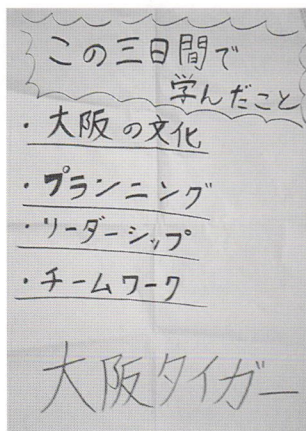 この三日間で
学んだこと
・大阪の文化
・プランニング
・リーダーシップ
・チームワーク
大阪タイガー